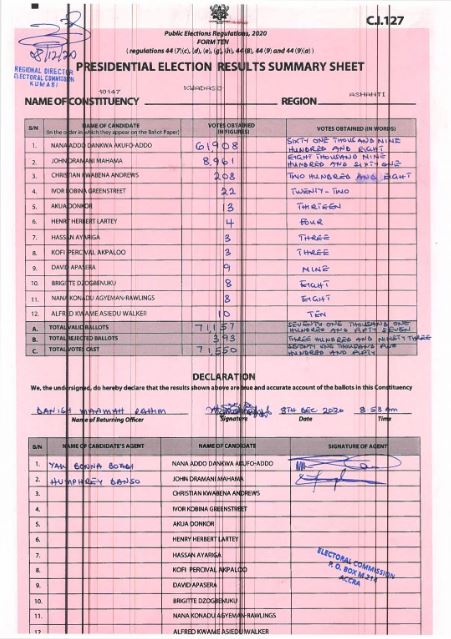 C.I.127
Public Elections Regulations, 2020
FORM TEN
(regulations 44 (7)(c), (d), (e), (g), (h), 44 (8), 44 (9) and 44 (9)(e))
08/12/20
REGIONAL DIRECTOR
ELECTORAL COMMISSION
KUMASI
PRESIDENTIAL ELECTION RESULTS SUMMARY SHEET
NAME OF CONSTITUENCY KWADASO REGION ASHANTI
S/N NAME OF CANDIDATE (In the order in which they appear on the Ballot Paper) VOTES OBTAINED (IN FIGURES) VOTES OBTAINED (IN WORDS)
1. NANA ADDO DANKWA AKUFO-ADDO 61908 SIXTY ONE THOUSAND NINE HUNDRED AND EIGHT
2. JOHN DRAMANI MAHAMA 8,961 EIGHT THOUSAND NINE HUNDRED AND SIXTY ONE
3. CHRISTIAN KWABENA ANDREWS 208 TWO HUNDRED AND EIGHT
4. IVOR KOBINA GREENSTREET 22 TWENTY-TWO
5. AKUA DONKOR 13 THIRTEEN
6. HENRY HERBERT LARTEY 4 FOUR
7. HASSAN AYARIGA 3 THREE
8. KOFI PERCIVAL AKPALOO 3 THREE
9. DAVID APASERA 9 NINE
10. BRIGITTE DZOGBENUKU 8 EIGHT
11. NANA KONADU AGYEMAN-RAWLINGS 8 EIGHT
12. ALFRED KWAME ASIEDU WALKER 10 TEN
A. TOTAL VALID BALLOTS 71,157 SEVENTY ONE THOUSAND ONE HUNDRED AND FIFTY SEVEN
B. TOTAL REJECTED BALLOTS 393 THREE HUNDRED AND NINETY THREE
C. TOTAL VOTES CAST 71,550 SEVENTY ONE THOUSAND FIVE HUNDRED AND FIFTY
DECLARATION
We, the undersigned, do hereby declare that the results shown above are true and accurate account of the ballots in this Constituency
8TH DEC 2020
Name of Returning Officer Signature Date Time
S/N NAME OF CANDIDATE'S AGENT NAME OF CANDIDATE SIGNATURE OF AGENT
1. YAW NANA ADDO DANKWA AKUFO-ADDO
2. HUMPHREY DANSO JOHN DRAMANI MAHAMA
3. CHRISTIAN KWABENA ANDREWS
4. IVOR KOBINA GREENSTREET
5. AKUA DONKOR
6. HENRY HERBERT LARTEY
7. HASSAN AYARIGA
8. KOFI PERCIVAL AKPALOO
9. DAVID APASERA
10. BRIGITTE DZOGBENUKU
11. NANA KONADU AGYEMAN-RAWLINGS
12 ALFRED KWAME ASIEDU WALKER
ELECTORAL COMMISSION
P. O. BOX M 214
ACCRA